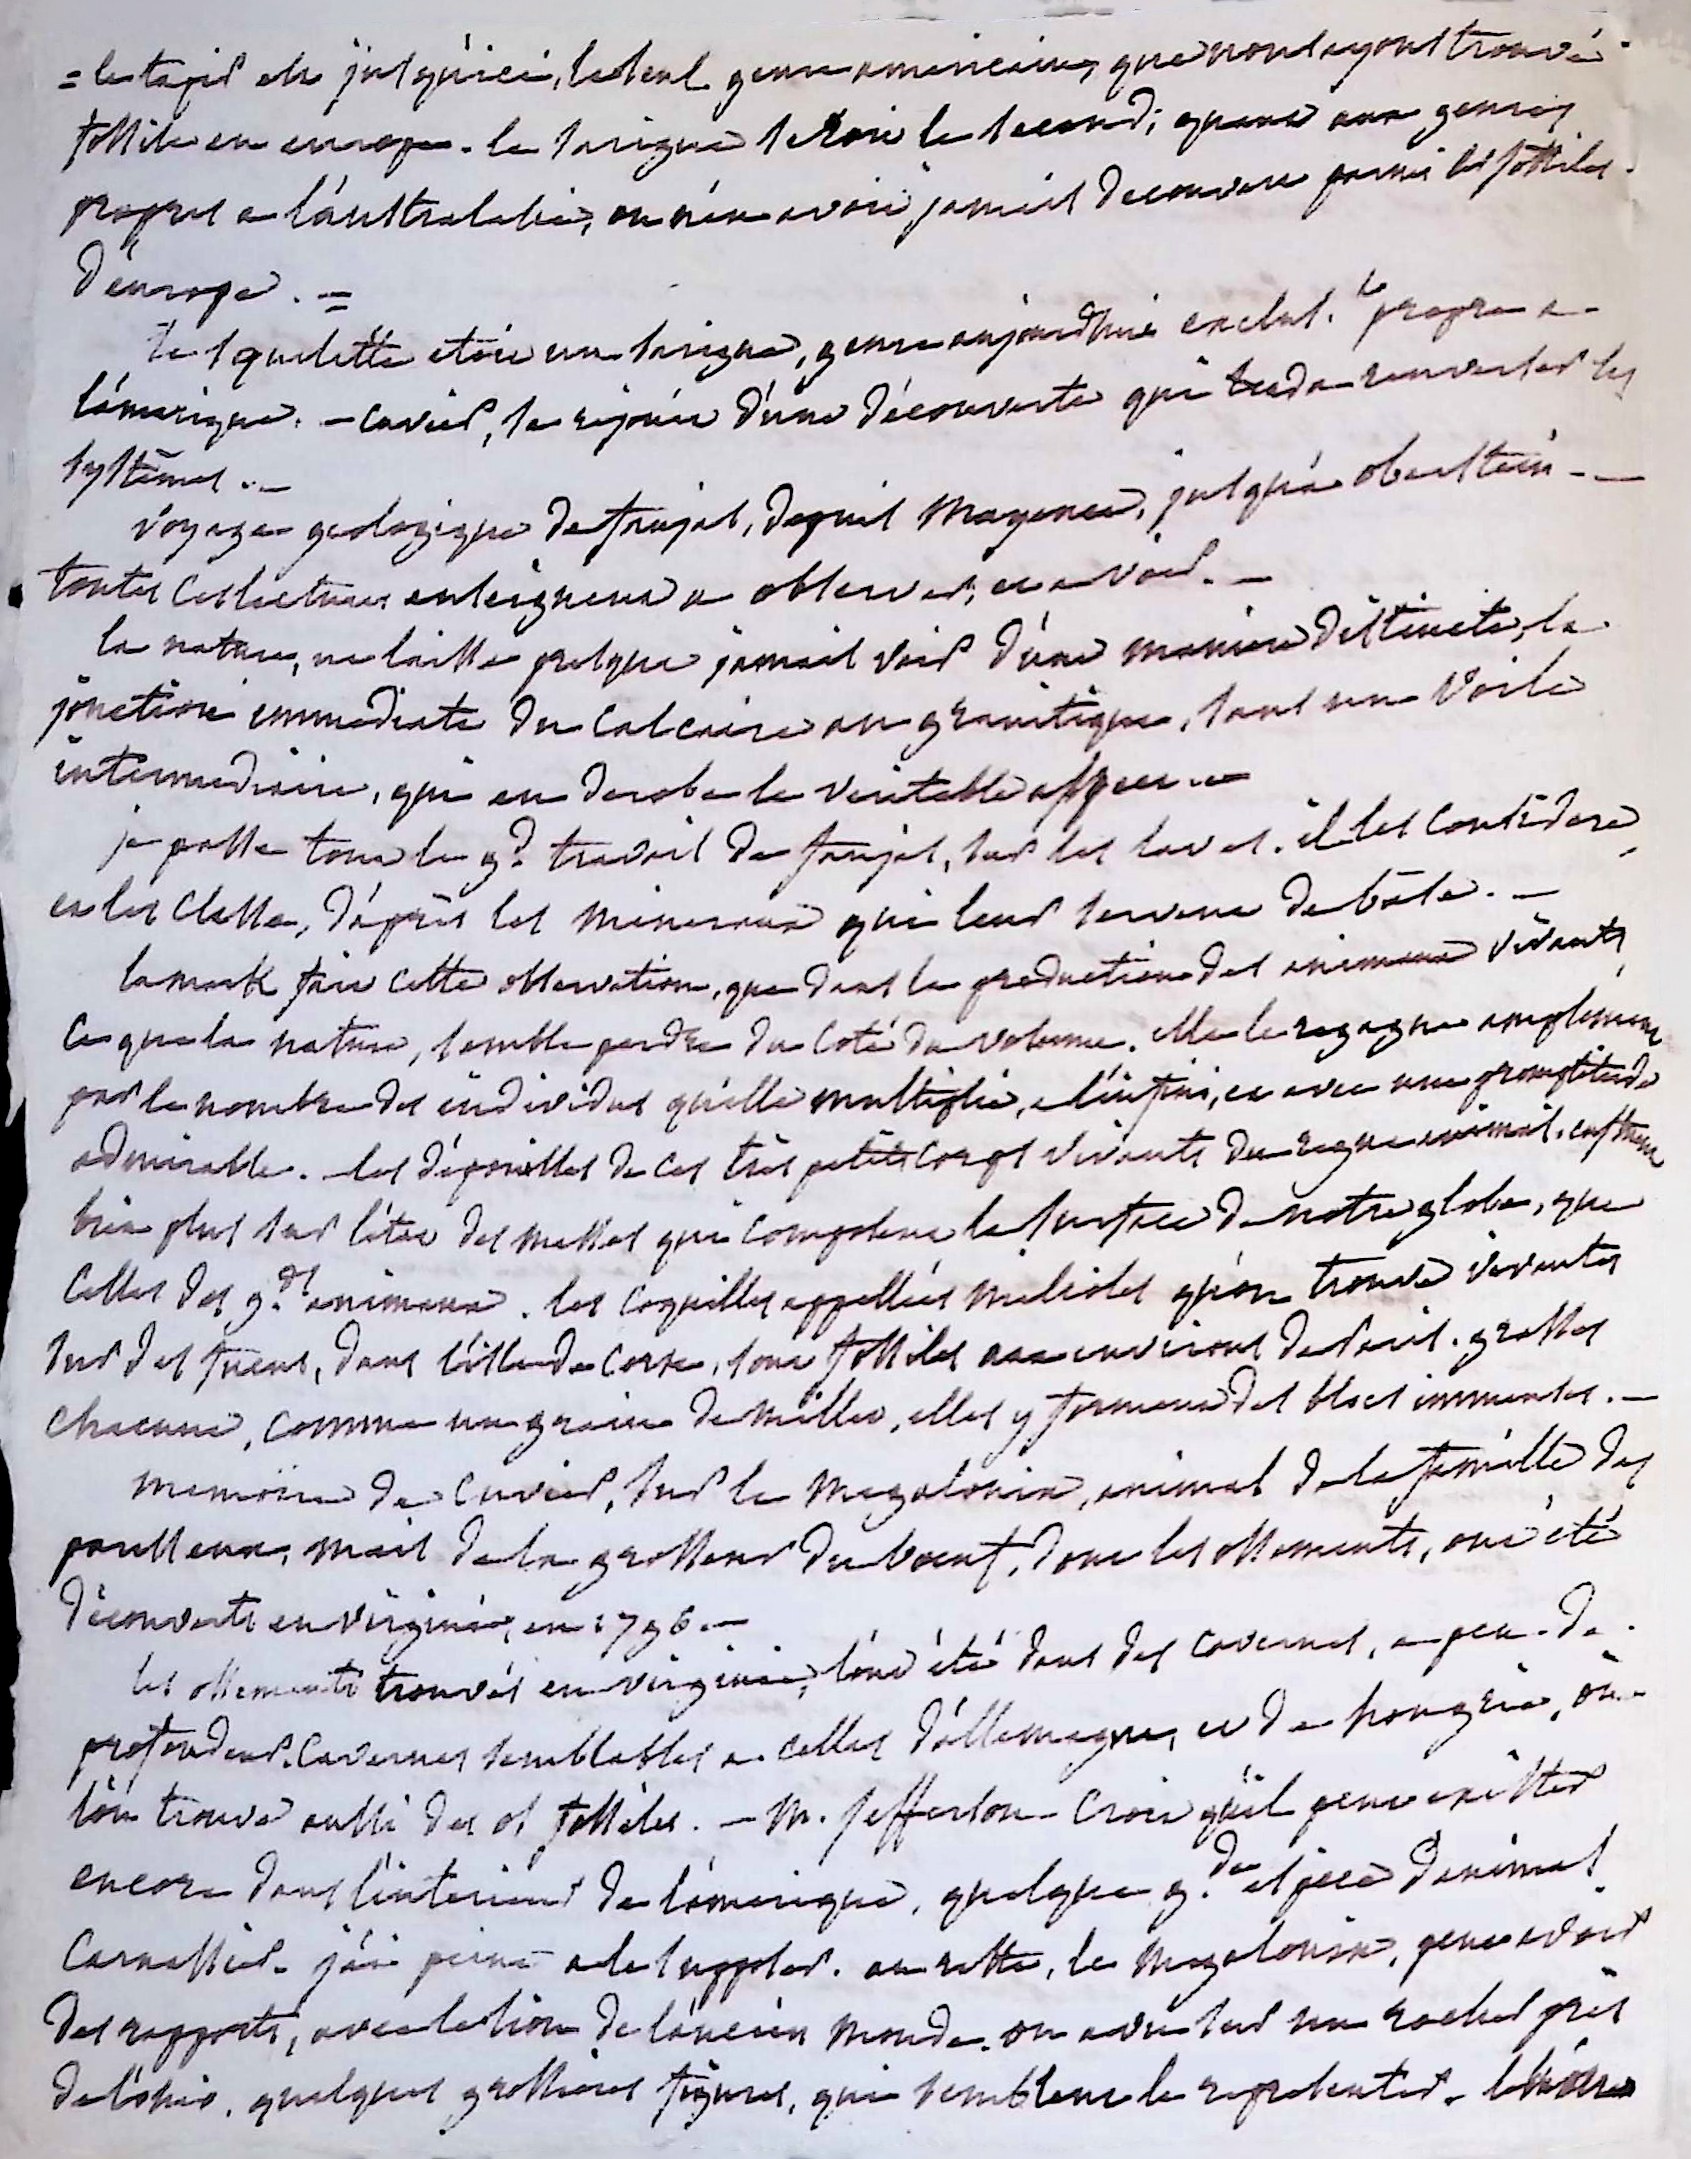 = le tapir est jusqu'ici, le seul genre americain, que nous ayons trouvé
fossile en europe. le sarigue seroit le second; quant aux genres
propres a l'australasie, on n'en avoit jamais decouvert parmi les fossiles
d'europe. =
le squelette etoit un sarigue, genre aujourdhui exclus.t propre a
l'amerique. - cuvier, se rejouit d'une découverte qui tend a renverser les
systêmes. -
voyage geologique de faujas, depuis Mayence, jusqu'a oberstein -
toutes ces lectures enseignent a observer, et a voir. -
la nature, ne laisse presque jamais voir d'une maniere distincte, la
jonction immediate du calcaire au granitique, sans un voile
intermediaire, qui en derobe le veritable aspect. -
je passe tout le g.d travail de faujas, sur les laves. il les considere,
et les classe, d'après les mineraux qui leur servent de base. -
lamark fait cette observation, que dans la production des animaux vivants,
ce que la nature, semble perdre du coté du volume. elle le regagne amplement
par le nombre des individus qu'elle multiplie, a l'infini, et avec une promptitude
admirable. les dépouilles de ces très petits corps vivants du regne animal. influent
bien plus sur l'état des masses qui composent la surface de notre globe, que
celles des g.ds animaux. les coquilles appellées miliolés qu'on trouve vivantes
sur des fucus, dans l'isle de corse, sont fossiles aux environs de Paris. grosses
chacune, comme un grain de millet, elles y forment des blocs immenses. -
memoire de cuvier, sur le megalonix, animal de la famille des
paresseux, mais de la grosseur du boeuf, dont les ossements, ont été
découverts en virginie, en 1796. -
les ossements trouvés en virginie, l'ont été dans des cavernes, a peu de
profondeur. cavernes semblables a celles d'allemagne, et de hongrie, où
l'on trouve aussi des os fossiles. - M. jefferson croit qu'il peut exister
encore dans l'interieur de l'amerique, quelque g.de espece d'animal
carnassier. j'ai peine a le supposer. au reste, le megalonix, peut avoir
des rapports, avec le lion de l'ancien monde. on a vu sur un rocher près
de l'ohio, quelques grossieres figures, qui semblent le representer.